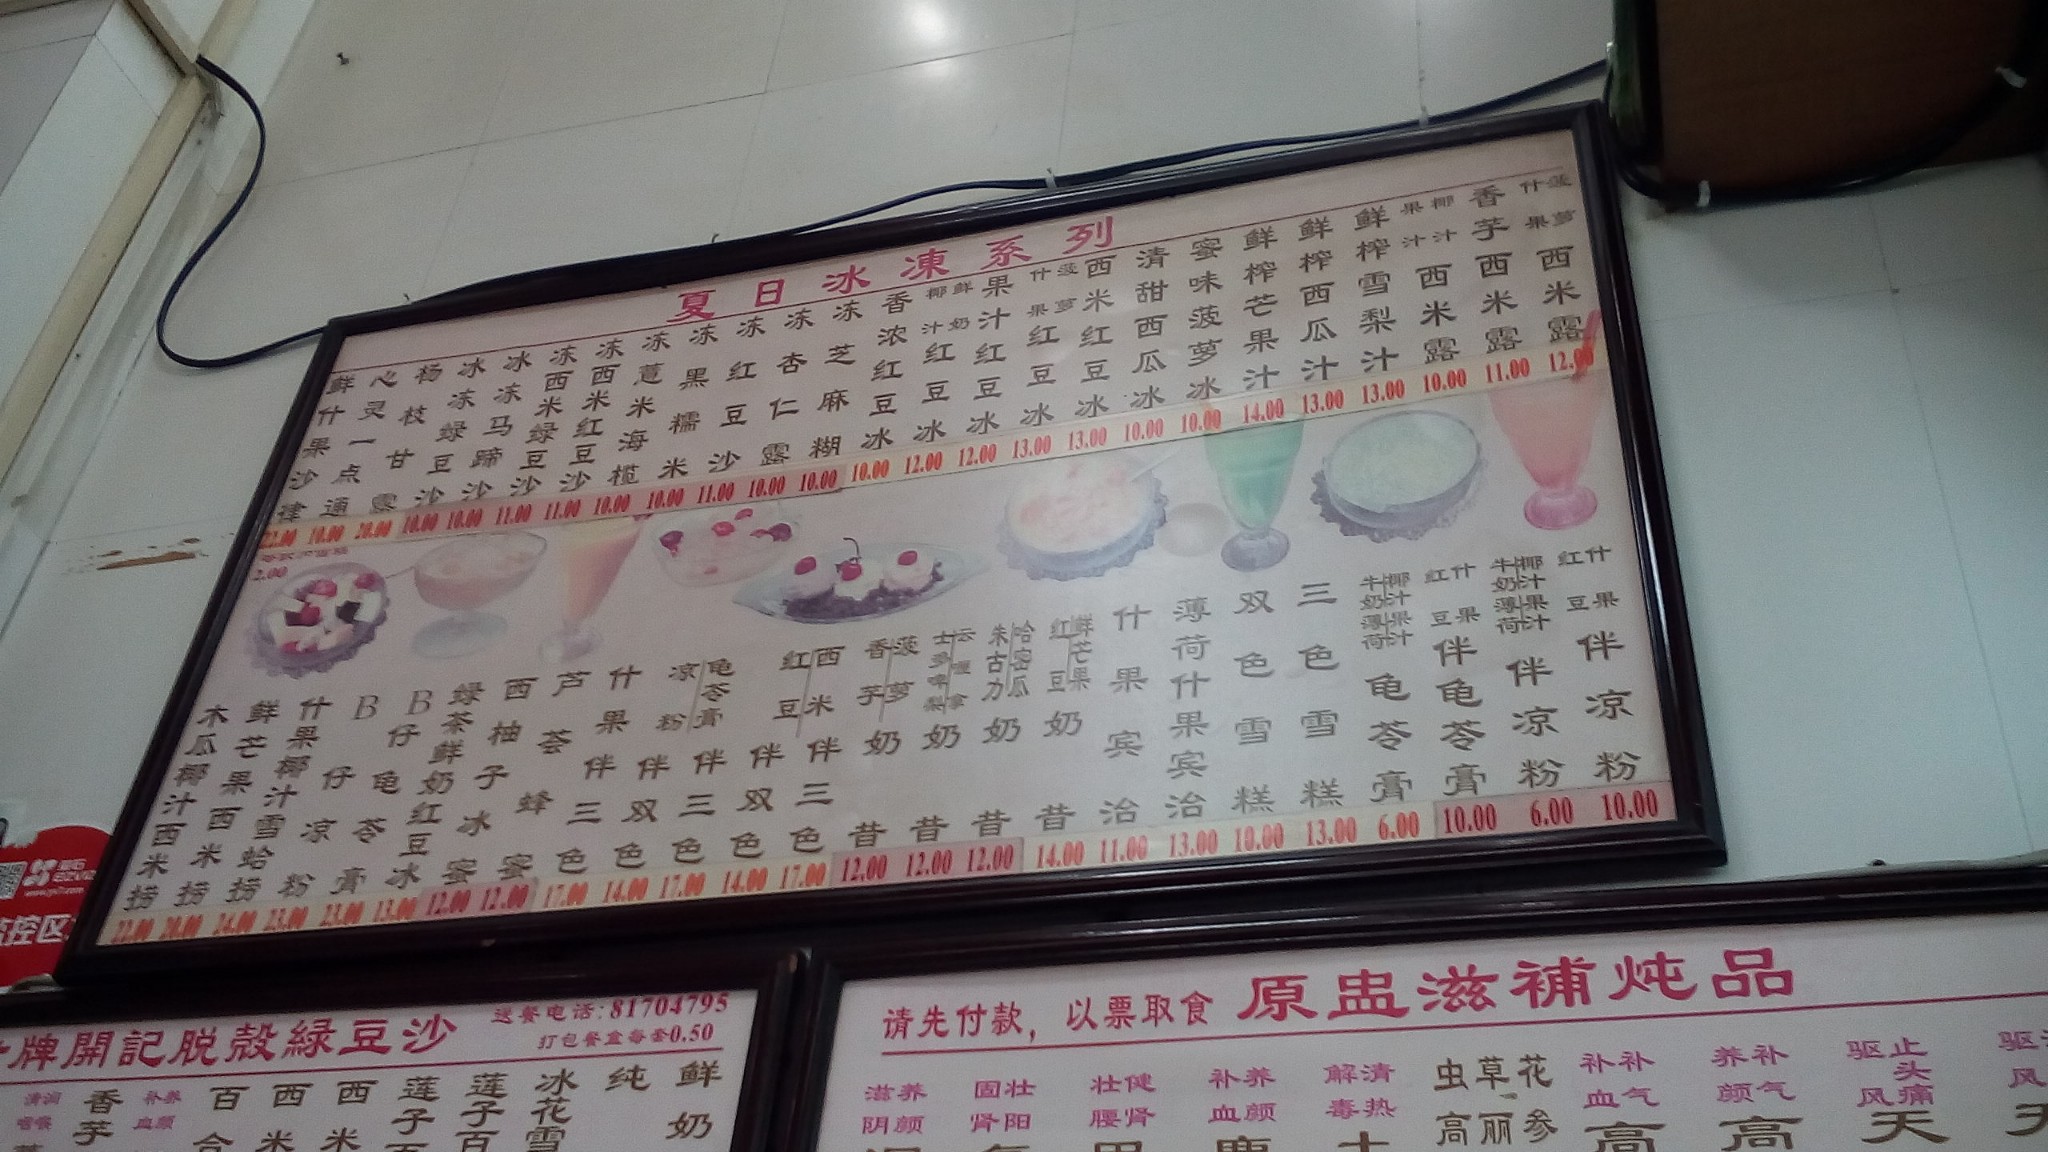 夏日冰凍系列
鲜什果沙律 22.00
心灵一点通 10.00
杨枝甘露 20.00
冰冻绿豆沙 10.00
冰冻马蹄沙 10.00
冻西米绿豆沙 11.00
冻西米红豆沙 11.00
冻薏米海榄 10.00
冻黑糯米 10.00
冻红豆沙 11.00
冻杏仁露 10.00
冻芝麻糊 10.00
香浓红豆冰 10.00
椰汁 鲜奶 红豆冰 12.00
果汁红豆冰 12.00
什果 菠萝 红豆冰 13.00
西米红豆冰 13.00
清甜西瓜冰 10.00
蜜味菠萝冰 10.00
鲜榨芒果汁 14.00
鲜榨西瓜汁 13.00
鲜榨雪梨汁 13.00
果汁 椰汁 西米露 10.00
香芋西米露 11.00
什果 菠萝 西米露 12.00
2.00
木瓜椰汁西米捞 22.00
鲜芒果西米捞 20.00
什果椰汁雪蛤捞 24.00
B仔凉粉 23.00
B仔龟苓膏 23.00
绿茶鲜奶红豆冰 13.00
西柚子冰蜜 12.00
芦荟蜂蜜 12.00
什果伴三色 17.00
凉粉伴双色 14.00
龟苓膏伴三色 17.00
红豆伴双色 14.00
西米伴三色 17.00
香芋 菠萝 奶昔 12.00
士多啤梨 云呢拿 奶昔 12.00
朱古力 哈密瓜 奶昔 12.00
红豆 鲜芒果 奶昔 14.00
什果宾治 11.00
薄荷什果宾治 13.00
双色雪糕 10.00
三色雪糕 13.00
牛奶 椰汁 薄荷 果汁 龟苓膏 6.00
红豆 什果 伴龟苓膏 10.00
牛奶 椰汁 薄荷 果汁 伴凉粉 6.00
红豆 什果 伴凉粉 10.00
牌開記脱殼緑豆沙
送餐电话:81704795
打包餐盒每套0.50
清润 香芋
补养血颜
百合
西米
西米
莲子
莲子百
冰花雪
纯
鲜奶
请先付款，以票取食 原盅滋補炖品
滋养阴颜
固壮肾阳
壮健腰肾
补养血颜
解清毒热
虫草花
高丽参
补补血气
高
养补颜气
高
驱止头风痛
天
监控区